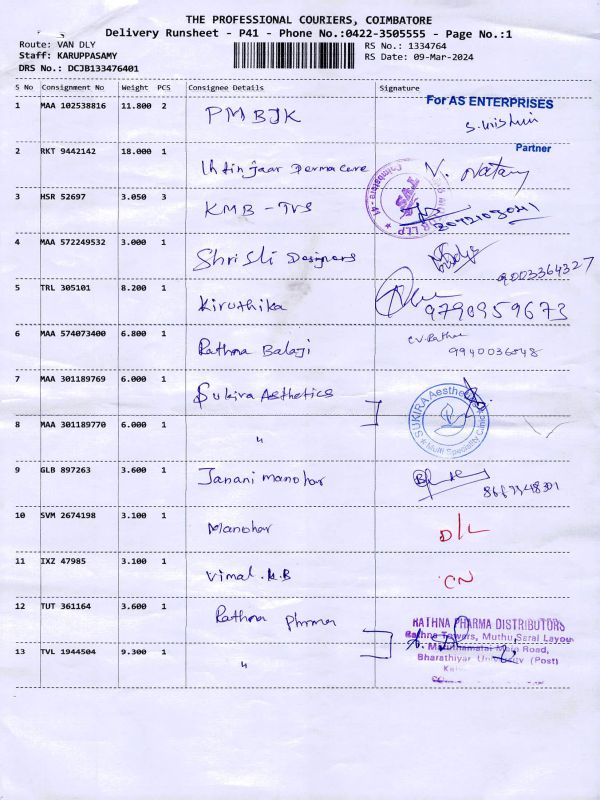 THE PROFESSIONAL COURIERS, COIMBATORE
Delivery Runsheet - P41 - Phone No.:0422-3505555 - Page No.:1
Route: VAN DLY
Staff: KARUPPASAMY
DRS No.: DCJB133476401
RS No.: 1334764
RS Date: 09-Mar-2024
S No Consignment No Weight PCS Consignee Details Signature
1 MAA 102538816 11.800 2 PMBJK
For AS ENTERPRISES
Partner
2 RKT 9442142 18.000 1 Derma care V. Natary
3 HSR 52697 3.050 3 KMB - TVS
4 MAA 572249532 3.000 1 Shri Sli Designers
9003364327
5 TRL 305101 8.200 1 Kiruthika 9790959673
6 MAA 574073400 6.800 1 Rathna Balaji
9940036048
7 MAA 301189769 6.000 1 Sukira Aesthetics
SUKIRA Aesthetic
Multi Speciality Clinic
8 MAA 301189770 6.000 1 "
9 GLB 897263 3.600 1 Janani manohar
10 SVM 2674198 3.100 1 Manohar D/L
11 IXZ 47985 3.100 1 Vimal .M.B CN
12 TUT 361164 3.600 1 Rathna phrma
RATHNA PHARMA DISTRIBUTORS
Rathna Towers, Muthu Saral Layou
Maruthamalai Main Road,
Bharathiyar University (Post)
13 TVL 1944504 9.300 1 "